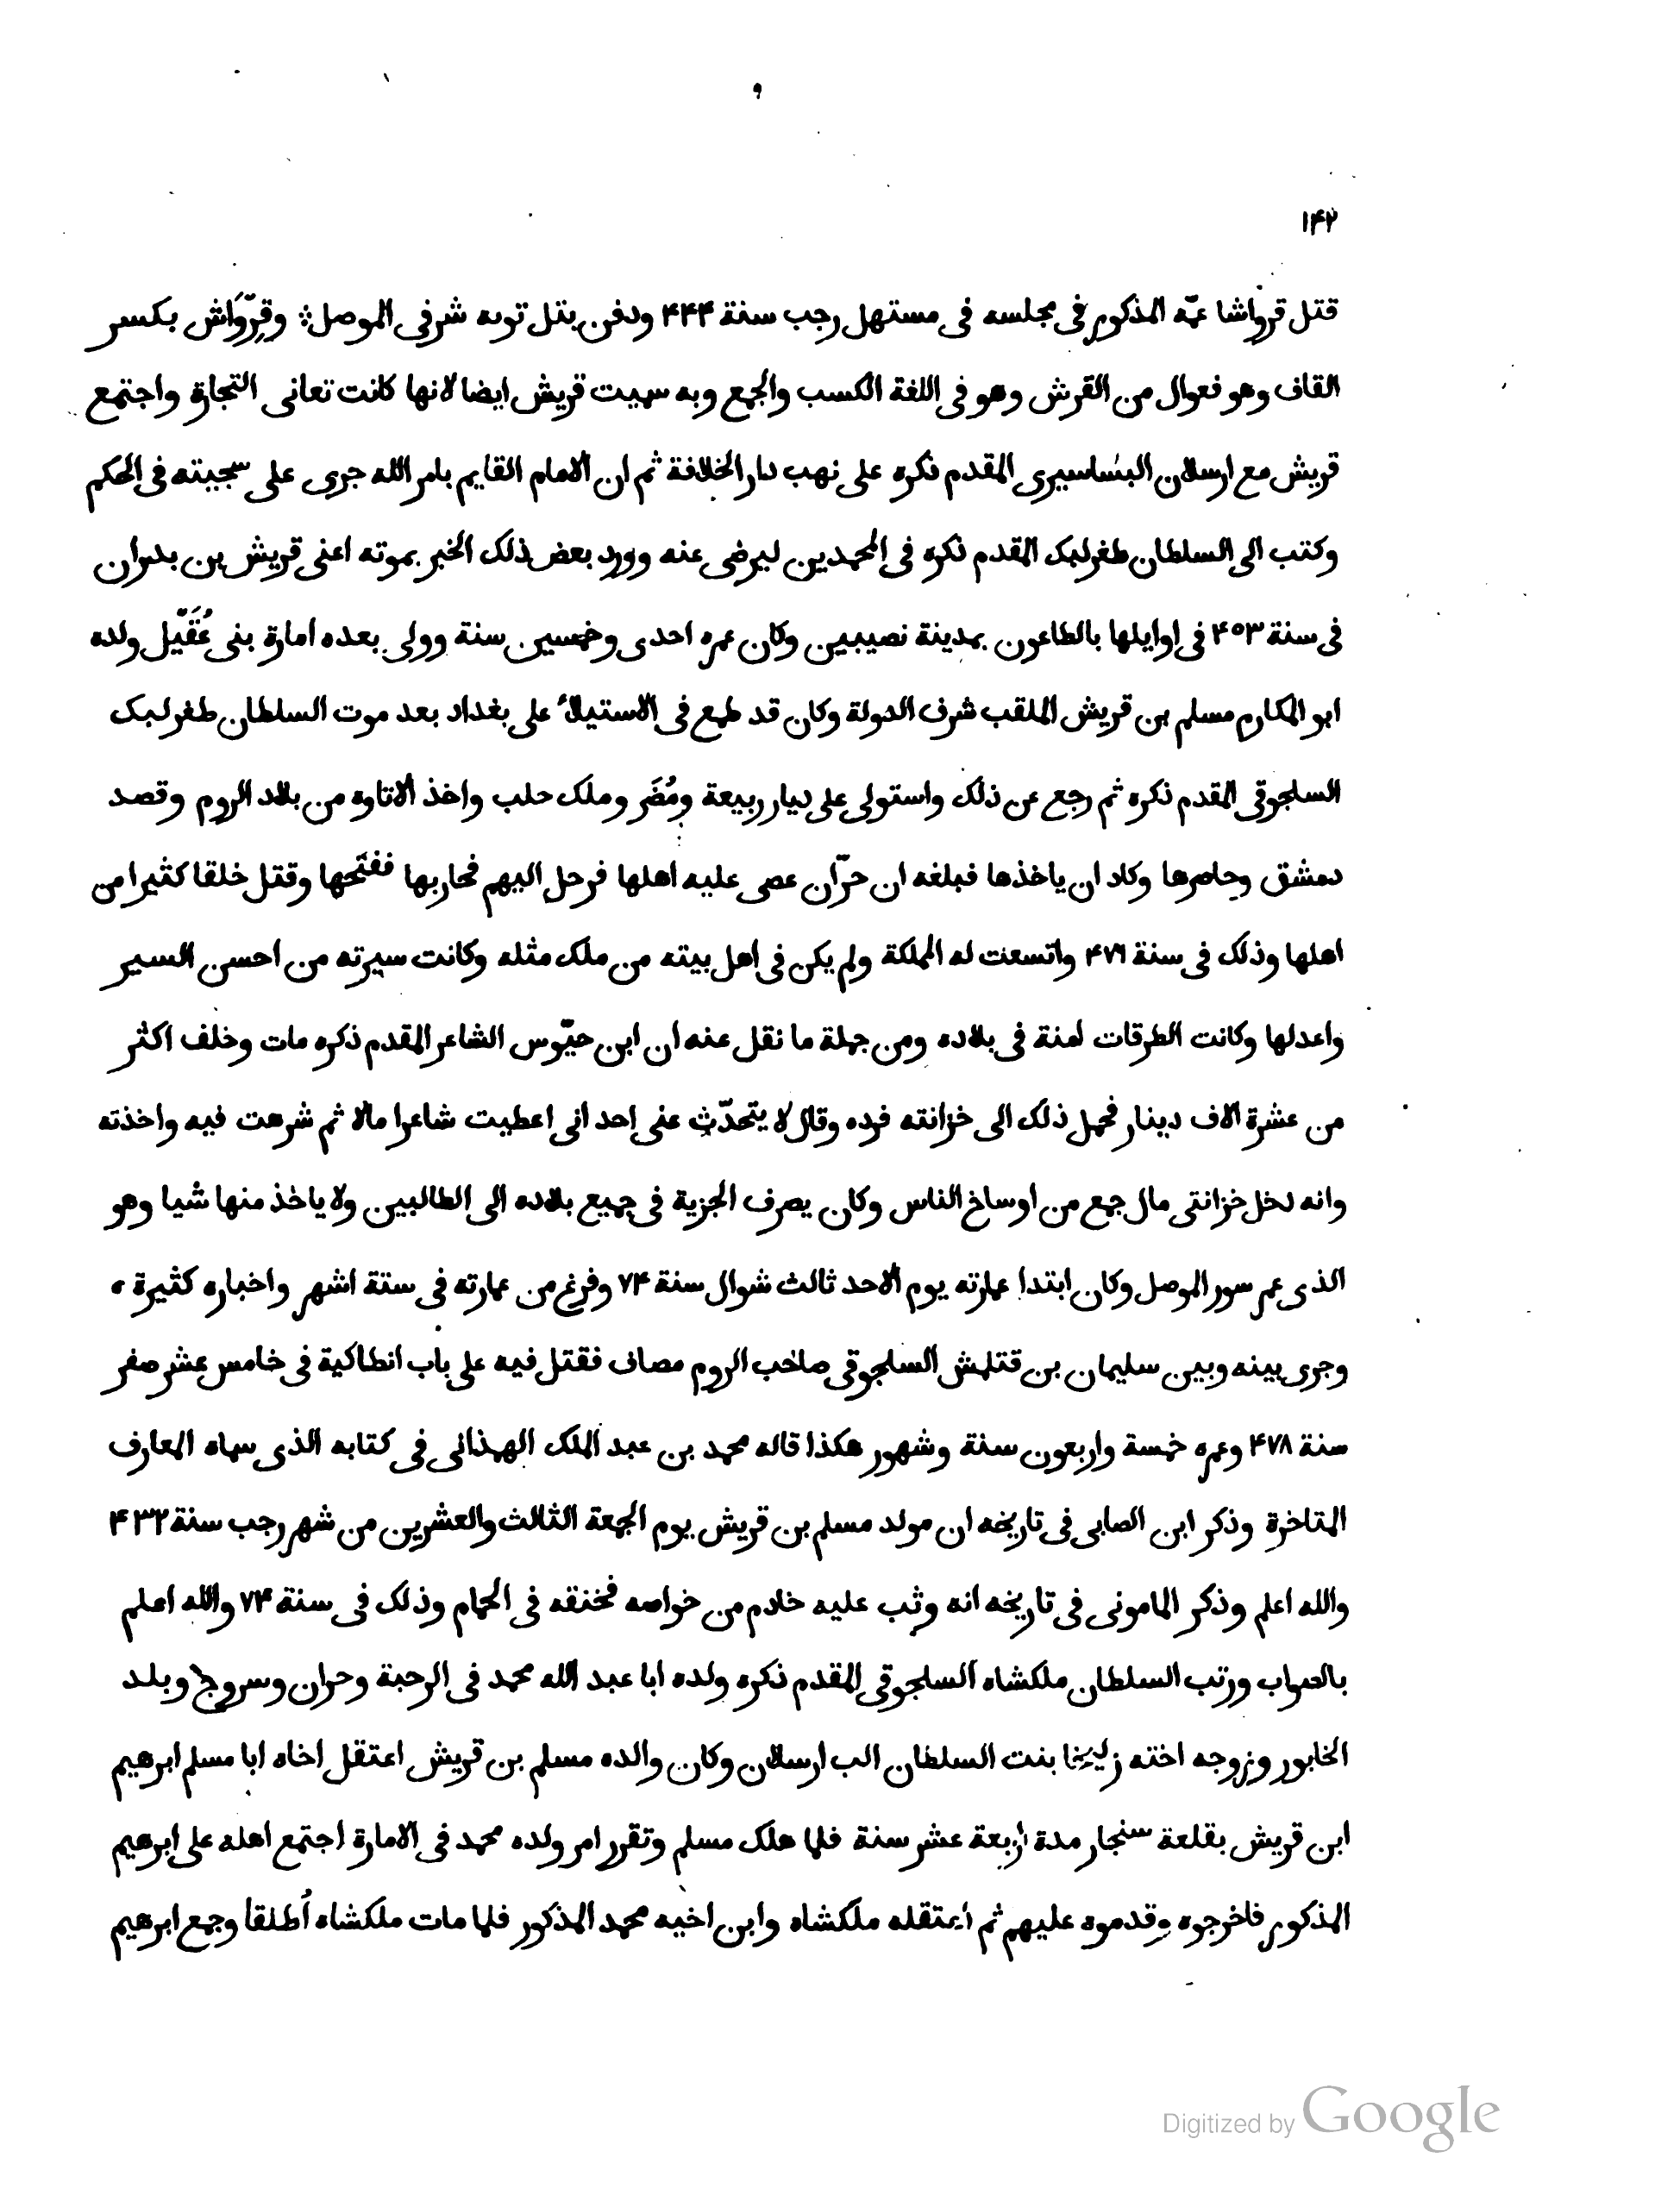 ١٤٢
قتل قرواشا عمّه المذكور فى مجلسه فى مستهل رجب سنة ۴۴۴ ودفن بتل توبه شرقى الموصل وقِرْوَاش بكسر
القاف وهو فعوال من القرش وهو فى اللغة الكسب والجمع وبه سميت قريش ايضا لانها كانت تعانى التجارة واجتمع
قريش مع ارسلان البساسيرى المقدم ذكره على نهب دار الخلافة ثم ان الامام القايم بامر الله جرى على سجيته فى الحكم
وكتب الى السلطان طغرلبك المقدم ذكره فى المحمدين ليرضى عنه وورد بعض ذلك الخبر بموته اعنى قريش بن بدران
فى سنة ۴٥٣ فى اوايلها بالطاعون بمدينة نصيبين وكان عمره احدى وخمسين سنة وولى بعده امارة بنى عُقَيْل ولده
ابو المكارم مسلم بن قريش الملقب شرف الدولة وكان قد طمع فى الاستيلاء على بغداد بعد موت السلطان طغرلبك
السلجوقى المقدم ذكره ثم رجع عن ذلك واستولى على ديار ربيعة ومُضَر وملك حلب واخذ الاتاوه من بلاد الروم وقصد
دمشق وحاصرها وكاد ان ياخذها فبلغه ان حرّان عصى عليه اهلها فرحل اليهم فحاربها ففتحها وقتل خلقا كثيرا من
اهلها وذلك فى سنة ۴٧٦ واتسعت له المملكة ولم يكن فى اهل بيته من ملك مثله وكانت سيرته من احسن السير
واعدلها وكانت الطرقات امنة فى بلاده ومن جملة ما نقل عنه ان ابن حيّوس الشاعر المقدم ذكره مات وخلف اكثر
من عشرة الاف دينار فحمل ذلك الى خزانته فرده وقال لا يتحدّث عنى احد انى اعطيت شاعرا مالا ثم شرهت فيه واخذته
وانه دخل خزانتى مال جمع من اوساخ الناس وكان يصرف الجزية فى جميع بلاده الى الطالبيين ولا ياخذ منها شيا وهو
الذى عمر سور الموصل وكان ابتدا عمارته يوم الاحد ثالث شوال سنة ٧۴ وفرغ من عمارته فى ستة اشهر واخباره كثيرة
وجرى بينه وبين سليمان بن قتلمش السلجوقى صاحب الروم مصاف فقتل فيه على باب انطاكية فى خامس عشر صفر
سنة ۴٧٨ وعمره خمسة واربعون سنة وشهور هكذا قاله محمد بن عبد الملك الهمذانى فى كتابه الذى سماه المعارف
المتاخرة وذكر ابن الصابى فى تاريخه ان مولد مسلم بن قريش يوم الجمعة الثالث والعشرين من شهر رجب سنة ۴٣٢
والله اعلم وذكر المامونى فى تاريخه انه وثب عليه خادم من خواصه فخنقه فى الحمام وذلك فى سنة ٧۴ والله اعلم
بالصواب ورتب السلطان ملكشاه السلجوقى المقدم ذكره ولده ابا عبد الله محمد فى الرحبة وحران وسروج وبلد
الخابور وزوجه اخته زليخا بنت السلطان الب ارسلان وكان والده مسلم بن قريش اعتقل اخاه ابا مسلم ابرهيم
ابن قريش بقلعة سنجار مدة اربعة عشر سنة فلما هلك مسلم وتقرر امر ولده محمد فى الامارة اجتمع اهله على ابرهيم
المذكور فاخرجوه وقدموه عليهم ثم اعتقله ملكشاه وابن اخيه محمد المذكور فلما مات ملكشاه أُطلقا وجمع ابرهيم
Digitized by Google